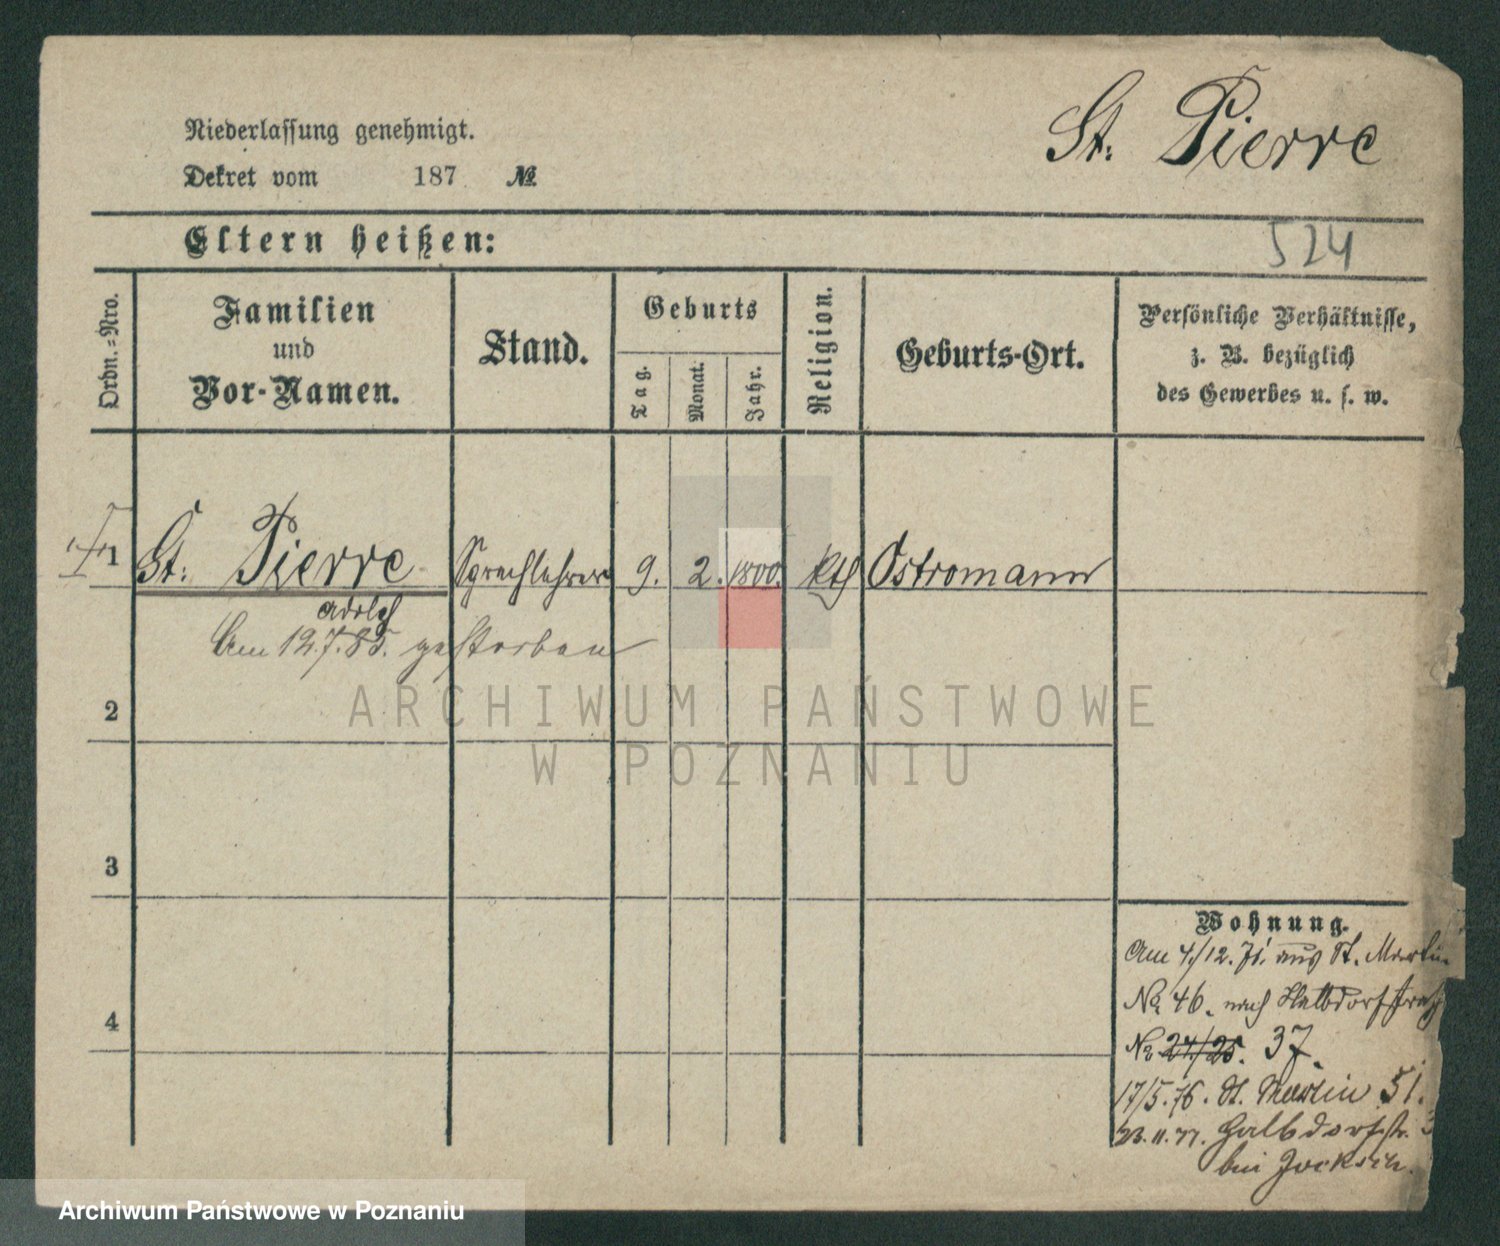 St. Pierre
Niederlassung genehmigt.
Dekret vom 187 №
Eltern heißen:
524
Ordn.-Nro.
Familien
und
Vor-Namen.
Stand.
Geburts
Tag.
Monat.
Jahr.
Religion.
Geburts-Ort.
Persönliche Verhältnisse,
z. B. bezüglich
des Gewerbes u. s. w.
1 St. Pierre Sprachlehrer 9. 2. 1800. kth Ostromann
Adolf
Am 12.7.85. gestorben
2
3
4
ARCHIWUM PAŃSTWOWE
W POZNANIU
Wohnung.
Am 4/12. 71. aus St. Martin
No 46. nach Halbdorfstraß
No 24/25. 37.
17/5.76. St. Martin 51.
23.11.77. Halbdorfstr.
bei
Archiwum Państwowe w Poznaniu